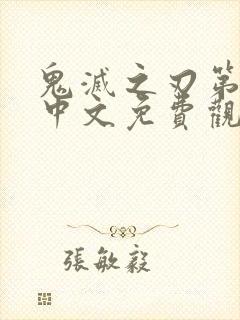 鬼滅之刃第
中文免費觀
張敏毅